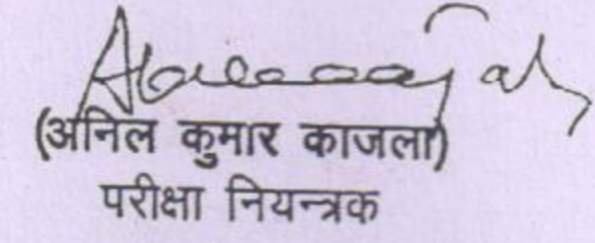 (अनिल कुमार काजला)
परीक्षा नियन्त्रक